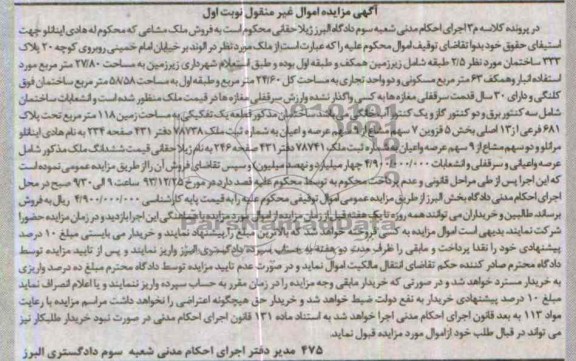 آگهی مزایده اموال غیر منقول نوبت اول
در پرونده کلاسه م۳ اجرای احکام مدنی شعبه سوم دادگاه البرز ژیلا حقانی محکوم است به فروش ملک مشاعی که محکوم له هادی اینانلو جهت
استیفای حقوق خود بدوا تقاضای توقیف اموال محکوم علیه را که عبارت است از ملک مورد نظر در الوند بر خیابان امام خمینی روبروی کوچه ۲۰ پلاک
۳۲۲ ساختمان مورد نظر ۲/۵ طبقه شامل زیرزمین همکف و طبقه اول بوده و طبق استعلام شهرداری زیرزمین به مساحت ۲۷/۸۰ متر مربع مورد
استفاده انبار و همکف ۶۳ متر مربع مسکونی و دو واحد تجاری به مساحت کل ۲۴/۶۰ متر مربع و طبقه اول به مساحت ۵۸/۵۸ متر مربع ساختمان فوق
کلنگی و دارای ۳۰ سال قدمت سرقفلی مغازه ها به کسی واگذار نشده و ارزش سرقفلی مغازه ها در قیمت ملک منظور شده است و انشعابات ساختمان
شامل سه کنتور برق و دو کنتور گاز و یک کنتور آب ساختمان مذکور قطعه یک تفکیکی به مساحت زمین ۱۱۸ متر مربع تحت پلاک
۶۸۱ فرعی از ۱۳ اصلی بخش ۵ قزوین ۷ سهم مشاع از ۹ سهم عرصه و اعیان به شماره ثبت ملک ۷۸۷۳۸ دفتر ۴۳۱ صفحه ۲۳۴ به نام هادی اینانلو
مرانلو و دو سهم مشاع از ۹ سهم عرصه واعیان شماره ثبت ملک ۷۸۷۴۱ دفتر ۴۳۱ صفحه ۲۴۶ به نام ژیلا حقانی قیمت ششدانگ ملک مذکور شامل
عرصه واعیانی و سرقفلی و انشعابات ۴/۹۰۰/۰۰۰/۰۰۰ چهار میلیارد و نهصد میلیون) و سپس تقاضای فروش آن را از طریق مزایده عمومی نموده است
که این اجرا پس از طی مراحل قانونی و عدم پرداخت محکوم به توسط محکوم علیه قصد دارد در مورخ ۹۳/۱۲/۲۵ ساعت ۹ الی ۹/۳۰ صبح در محل
اجرای احکام مدنی دادگاه بخش البرز از طریق مزایده عمومی اموال توقیفی محکوم علیه را به قیمت پایه کارشناسی ۴/۹۰۰/۰۰۰/۰۰۰ ریال به فروش
برساند. طالبین و خریداران می توانند همه روزه تا یک هفته قبل از زمان مزایده از اموال مورد مزایده با هماهنگی این اجرا بازدید و در زمان مزایده حضورا
شرکت نمایند. بدیهی است اموال مزایده به کسی فروخته خواهد شد که بالاترین مبلغ را پیشنهاد نمایند و خریدار می بایستی مبلغ ۱۰ درصد
پیشنهادی خود را نقدا پرداخت و مابقی را ظرف مدت دو هفته به حساب سپرده دادگستری البرز واریز نمایند و پس از تایید مزایده توسط
دادگاه محترم صادر کننده حکم تقاضای انتقال مالکیت اموال نماید و در صورت عدم تایید مزایده توسط دادگاه محترم مبلغ ده درصد واریزی
به خریدار مسترد خواهد شد و در صورتی که خریدار مابقی وجه مزایده را در زمان مقرر به حساب سپرده واریز ننمایند و یا اعلام انصراف نماید
مبلغ ۱۰ درصد پیشنهادی خریدار به نفع دولت ضبط خواهد شد و خریدار حق هیچگونه اعتراضی را نخواهد داشت مراسم مزایده با رعایت
مواد ۱۱۳ به بعد قانون اجرای احکام مدنی اجرا خواهد شد به استناد ماده ۱۳۱ قانون اجرای احکام مدنی در صورت نبود خریدار طلبکار نیز
می تواند در قبال طلب خود از اموال مورد مزایده قبول نماید.
۴۷۵ مدیر دفتر اجرای احکام مدنی شعبه سوم دادگستری البرز